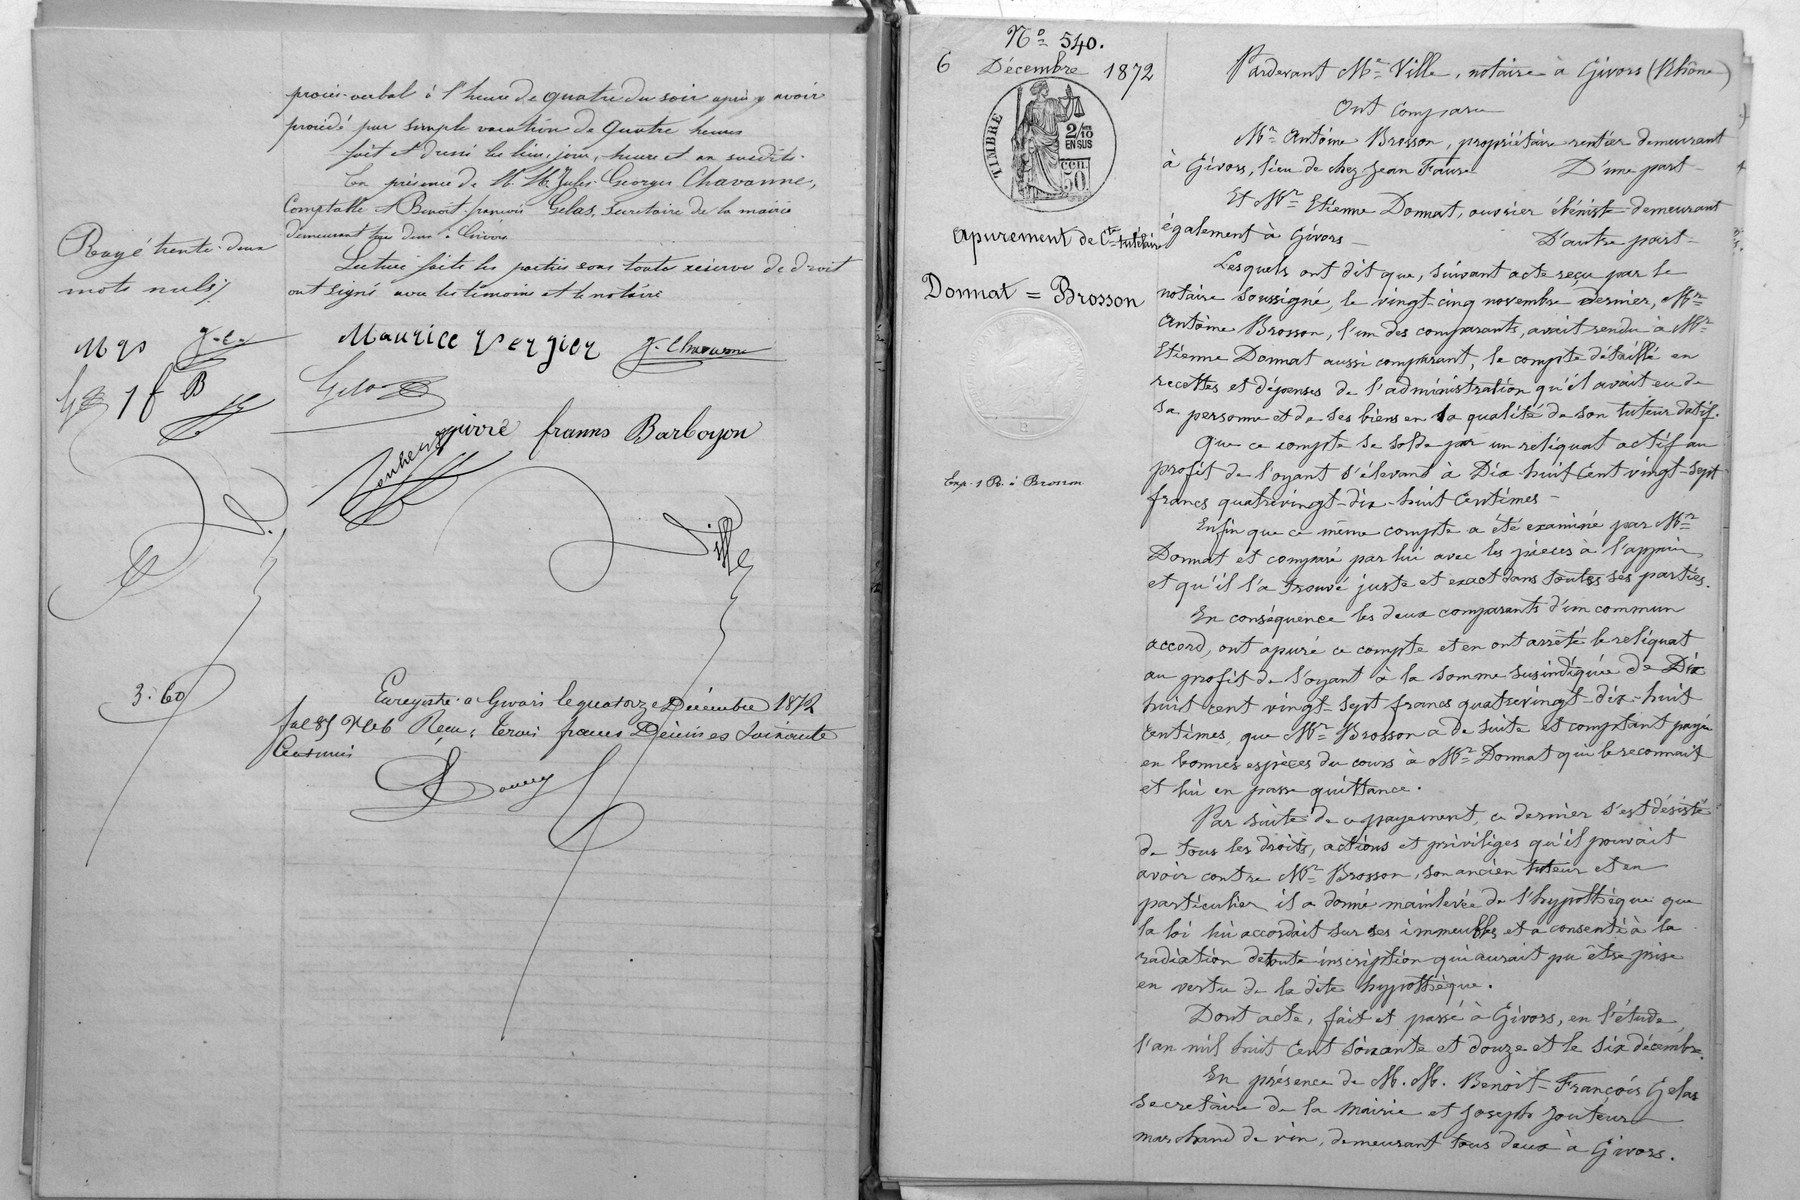 procès-verbal à l'heure de quatre du soir après y avoir
procédé par simple vacation de quatre heures
fait et dressé les lieu, jour, heure et an susdits.
En présence de M. M. Jules Georges Chavanne,
Comptable et Benoit françois Gelas, secretaire de la mairie
demeurant tous deux à Givors
Lecture faite les parties sous toute réserve de droit
ont signé avec les témoins et le notaire
Rayé trente-deux
mots nuls
Maurice Verzier J. Chavanne
Gelas
franns Barboyon
Ville
3.60
Enregistré à Givors le quatorze Décembre 1872
fol 85 Reçu trois francs Décimes soixante
Centimes
No 540.
6 Décembre 1872
TIMBRE
2/10
EN SUS
CEN.
50
Apurement de Cte tutélaire
Donnat = Brosson
Exp. 1 R. à Brosson
Pardevant Me Ville, notaire à Givors (Rhône)
Ont Comparu
Mr Antoine Brosson, propriétaire rentier demeurant
à Givors, lieu de chez Jean Faure D'une part
Et Mr Etienne Donnat, ouvrier ébéniste demeurant
également à Givors D'autre part
Lesquels ont dit que, suivant acte reçu par le
notaire soussigné, le vingt-cinq novembre dernier, Mr
Antoine Brosson, l'un des comparants, avait rendu à Mr
Etienne Donnat aussi comparant, le compte détaillé en
recettes et dépenses de l'administration qu'il avait eu de
sa personne et de ses biens en la qualité de son tuteur datif.
Que ce compte se solde par un reliquat actif au
profit de l'oyant s'élevant à Dix huit cent vingt-sept
francs quatrevingt-dix-huit centimes
Enfin que ce même compte a été examiné par Mr
Donnat et comparé par lui avec les pièces à l'appui,
et qu'il l'a trouvé juste et exact dans toutes ses parties.
En conséquence les deux comparants d'un commun
accord, ont apuré ce compte et en ont arrêté le reliquat
au profit de l'oyant à la somme susindiquée de Dix
huit cent vingt-sept francs quatrevingt-dix-huit
centimes, que Mr Brosson a de suite et comptant payée
en bonnes espèces du cours à Mr Donnat qui le reconnait
et lui en passe quittance.
Par suite de ce payement, ce dernier s'est désisté
de tous les droits, actions et priviléges qu'il pouvait
avoir contre Mr Brosson, son ancien tuteur et en
particulier il a donné mainlevée de l'hypothèque que
la loi lui accordait sur ses immeubles et a consenti à la
radiation de toute inscription qui aurait pu être prise
en vertu de la dite hypothèque.
Dont acte, fait et passé à Givors, en l'étude,
l'an mil huit cent soixante et douze et le six décembre.
En présence de M. M. Benoit-François Gelas
secretaire de la mairie et Joseph Jouteur
marchand de vin, demeurant tous deux à Givors.